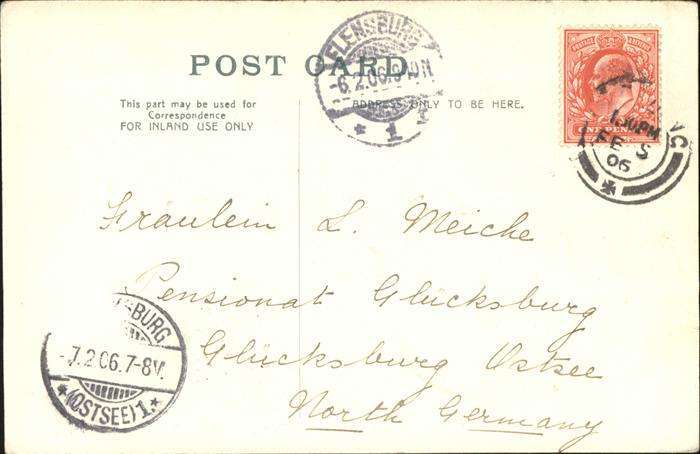 POST CARD.
This part may be used for
Correspondence
FOR INLAND USE ONLY
ADDRESS ONLY TO BE HERE.
FLENSBURG
-6.2.06.
* 1
POSTAGE REVENUE
ONE PENNY
1.30PM
FE
06
Fräulein L. Meiche
Pensionat Glücksburg
Glücksburg Ostsee
North Germany
SBURG
-7.2.06.7-8V.
*(OSTSEE)1.*